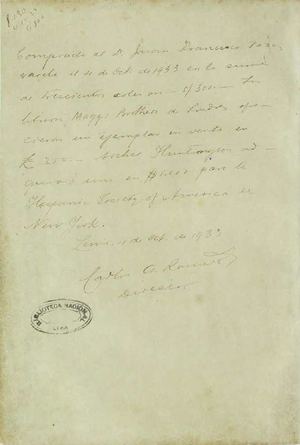 Comprado al D. Juan Francisco
el 4 de Oct. de 1933 en la suma
de trescientos soles oro — S/300 — La
Maggs Brothers de Londres
un ejemplar en venta en
£ 200 — Archer Huntington ad-
quirió uno en para la
Hispanic Society of America de
New York.
Lima, 4 Oct. de 1933
Carlos A. Romero
Director
BIBLIOTECA NACIONAL
LIMA